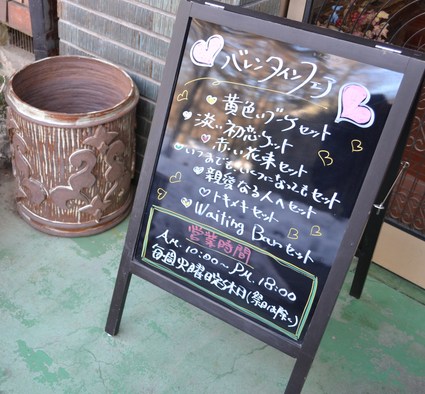 バレンタインフェア
黄色いブーケセット
淡い初恋セット
赤い花束セット
いつまでもいくつになってもセット
親愛なる人へセット
トキメキセット
Waiting Bearセット
営業時間
A.M. 10:00〜P.M. 18:00
毎週火曜日定休日(祭日は除く)